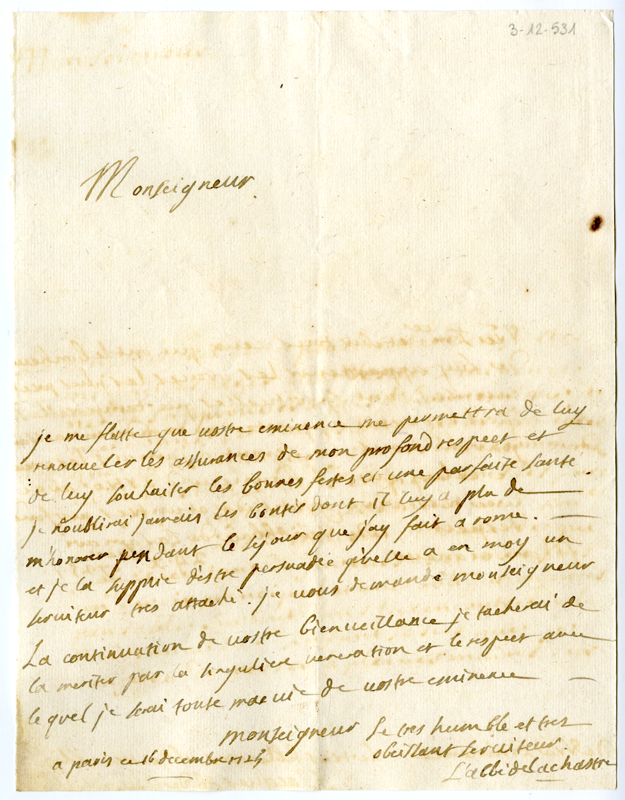 3-12-531
Monseigneur
je me flatte que vostre eminence me permettra de luy
renouveler les assurances de mon profond respect et
de luy souhaiter les bonnes festes et une parfaite santé.
je n'oublirai jamais les bontés dont il luy a plu de
m'honorer pendant le sejour que jay fait a rome.
et je la supplie d'estre persuadée qu'elle a en moy un
serviteur tres attaché. je vous demande monseigneur
La continuation de vostre bienveillance je tacherai de
la meriter par la singuliere veneration et le respect avec
le quel je serai toute ma vie de vostre eminence
monseigneur Le tres humble et tres
obeissant serviteur.
a paris ce 16 decembre
L'abbé de Lachastre